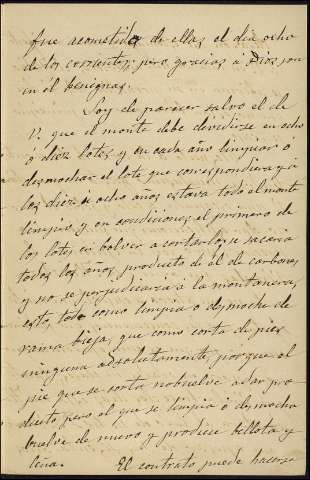 fue acometido de ellas el dia ocho
de los corrientes; pero gracias á Dios son
en él benignas.
Soy de parecer salvo el de
V. que el monte debe dividirse en ocho
ó diez lotes, y en cada año limpiar ó
desmochar el lote que correspondiera, y á
los diez ú ocho años estava todo el monte
limpio, y en condiciones el primero de
los lotes en bolver a cortarlo, se sacaria
todos los años producto de él de carbones
y no se perjudicara a la montanera,
esto, todo como limpia ó desmoche de
rama bieja, que como corta de pies
ninguna absolutamente, porque el
pie que se corta no buelve a dar pro-
ducto pero al que se limpia ó desmocha
buelve de nuevo y produce bellota y
leña. El contrato puede hacerse